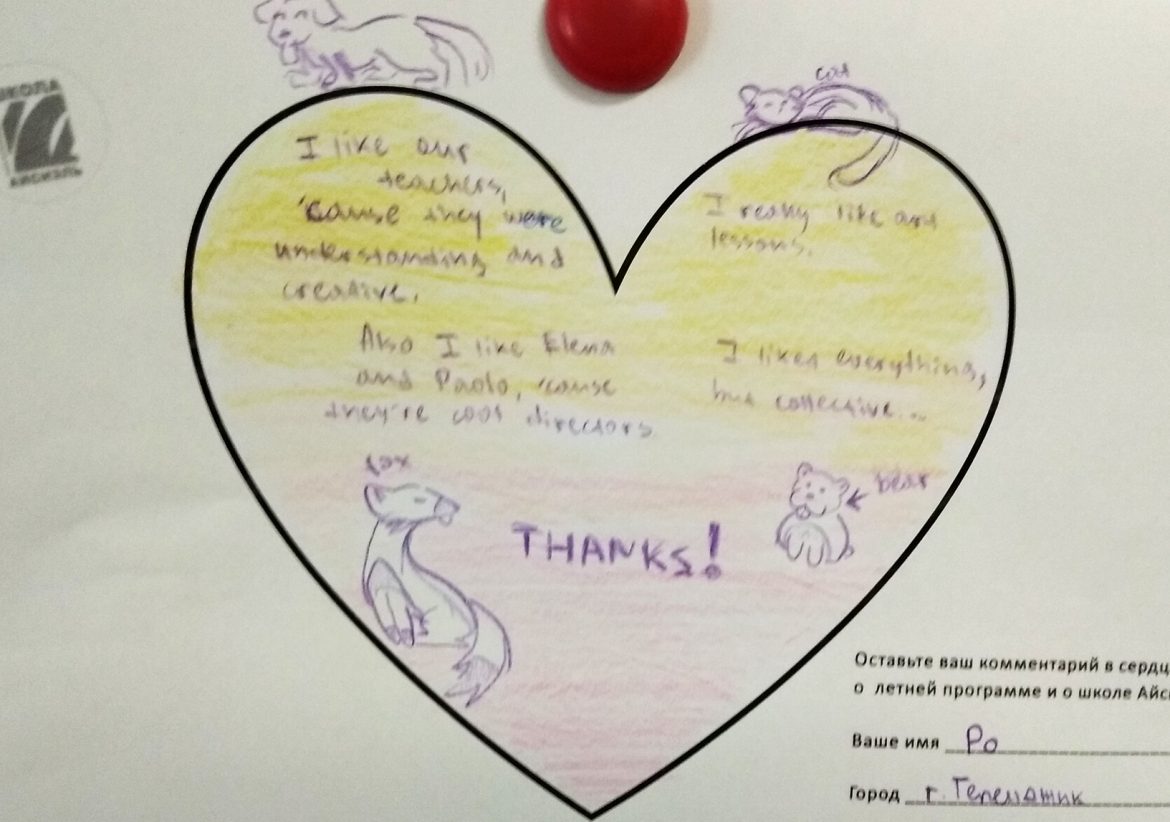 ШКОЛА
АЙСИЭЛЬ
cat
I like our
teachers,
'cause they were
understanding and
creative.
I really like art
lessons.
Also I like Elena
and Paolo, 'cause
they're cool directors
I liked everything,
but collective...
fox
bear
THANKS!
Оставьте ваш комментарий в сердц
о летней программе и о школе Айс
Ваше имя Ро
Город г.